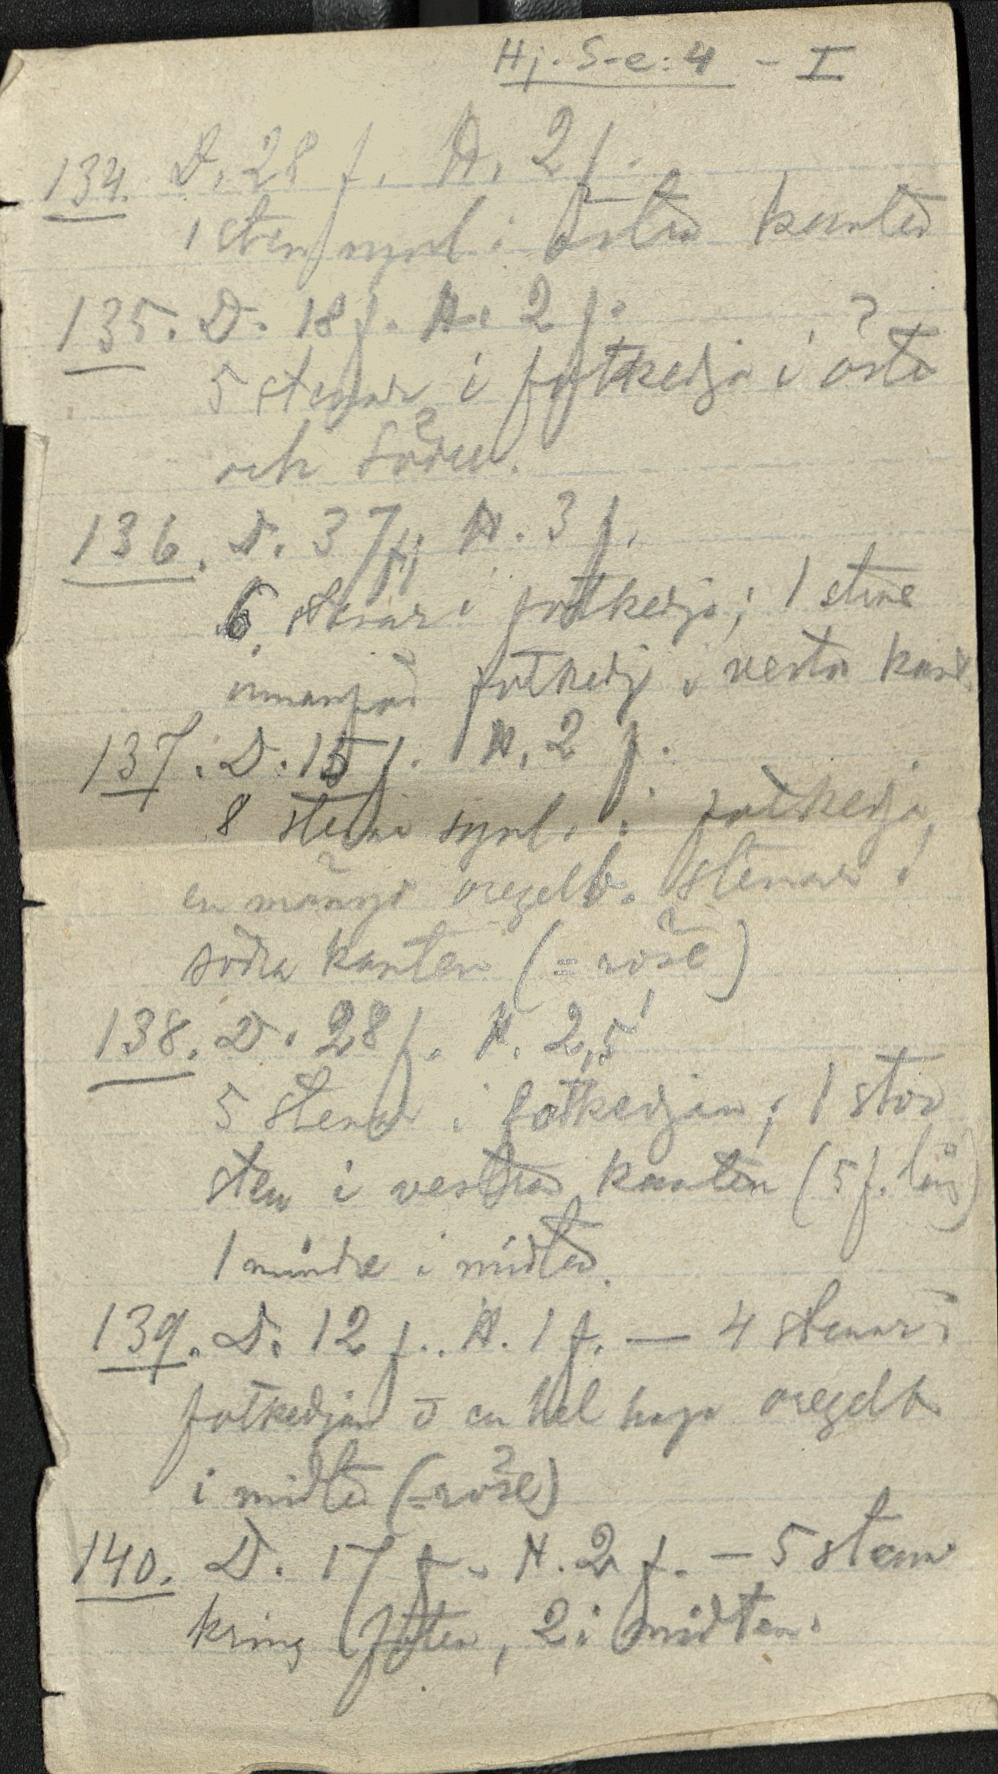 Hj. S-e: 4 - I
134. D. 28 f. H. 2 f.
1 sten synl i östra kanten
135. D. 18 f. H. 2 f.
5 stenar i fotkedja i östra
och södra.
136. D. 37 f; H. 3 f.
6 stenar i fotkedja; 1 större
innanför fotkedj i vestra kant.
137. D. 15 f. H. 2 f.
8 stenar synl. i fotkedja,
en mängd oregelb. stenar i
södra kanten (= röse)
138. D. 28 f. H. 2,5'
5 stenar i fotkedjan; 1 stor
sten i vestra kanten (5 f. lång)
1 mindre i midten.
139. D. 12 f. H. 1 f. — 4 stenar i
fotkedjan o en hel hop oregelb.
i midten (= röse)
140. D. 17 f. H. 2 f. — 5 stenar
kring foten, 2 i midten.